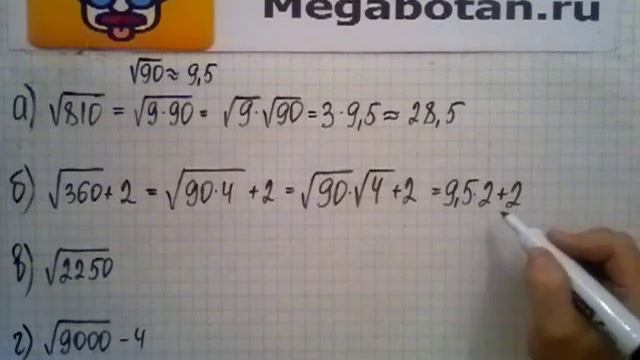 Megabotan.ru
√90 ≈ 9,5
а) √810 = √9·90 = √9·√90 = 3·9,5 ≈ 28,5
б) √360 + 2 = √90·4 + 2 = √90·√4 + 2 = 9,5·2+2
в) √2250
г) √9000 - 4